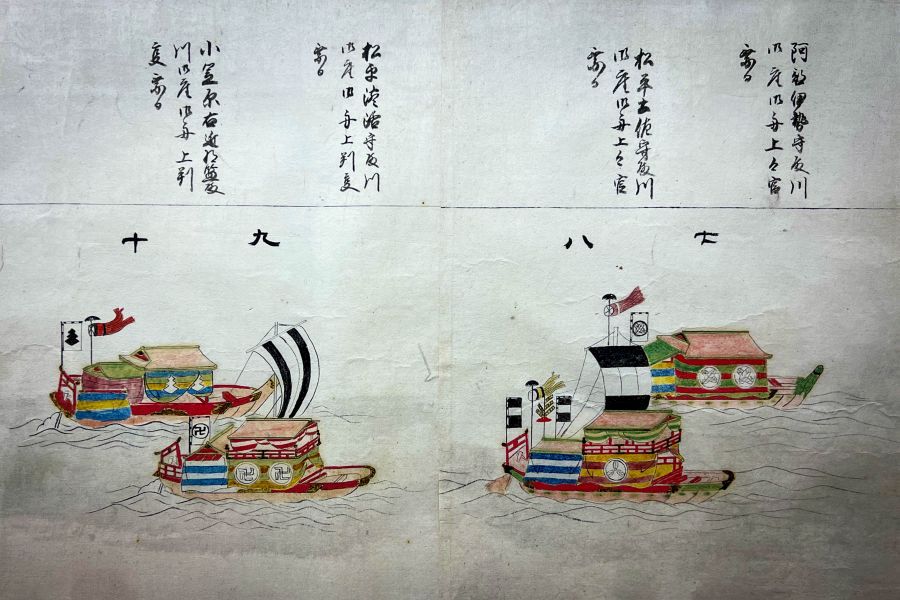 阿部伊勢守殿川
御座御舟上々官
乗
松平土佐守殿川
御座御舟上々官
乗
松平淡路守殿川
御座御舟上判事
乗
小笠原右近将監殿
川御座御舟上判
事乗
七
八
九
十